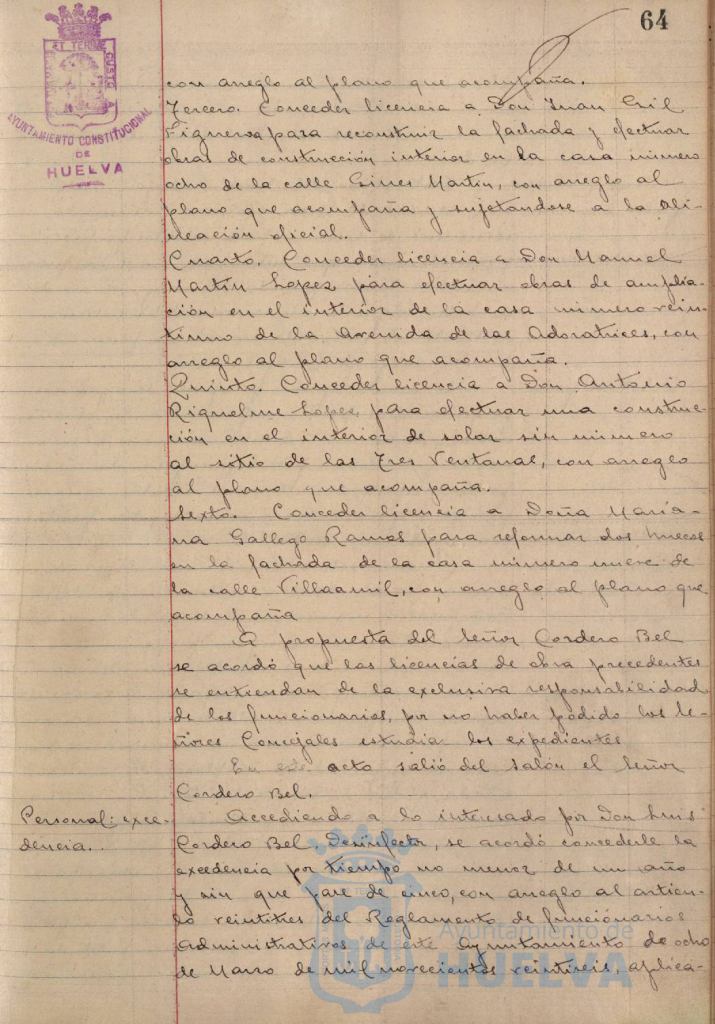 64
ET TERRE CUSTODIA
AYUNTAMIENTO CONSTITUCIONAL
DE
HUELVA
con arreglo al plano que acompaña.
Tercero. Conceder licencia a Don Juan Gil
Figueroa para reconstruir la fachada y efectuar
obras de construcción interior en la casa número
ocho de la calle Gines Martín, con arreglo al
plano que acompaña y sujetandose a la ali-
neación oficial.
Cuarto. Conceder licencia a Don Manuel
Martín Lopez para efectuar obras de amplia-
ción en el interior de la casa número vein-
tiuno de la Avenida de las Adoratrices, con
arreglo al plano que acompaña.
Quinto. Conceder licencia a Don Antonio
Riquelme Lopez, para efectuar una construc-
ción en el interior de solar sin número
al sitio de las Tres Ventanas, con arreglo
al plano que acompaña.
Sexto. Conceder licencia a Doña Maria-
na Gallego Ramos para reformar dos huecos
en la fachada de la casa número nueve de
la calle Villaamil, con arreglo al plano que
acompaña
A propuesta del Señor Cordero Bel
se acordó que las licencias de obra precedentes
se entiendan de la exclusiva responsabilidad
de los funcionarios, por no haber podido los Se-
ñores Concejales estudiar los expedientes
En este acto salió del salón el Señor
Cordero Bel.
Personal: exce-
dencia.
Accediendo a lo interesado por Don Luis
Cordero Bel, Desinfector, se acordó concederle la
excedencia por tiempo no menor de un año
y sin que pase de cinco, con arreglo al artícu-
lo veintitres del Reglamento de funcionarios
Administrativos de este Ayuntamiento de ocho
de Marzo de mil novecientos veintiseis, aplica-
Ayuntamiento de
HUELVA